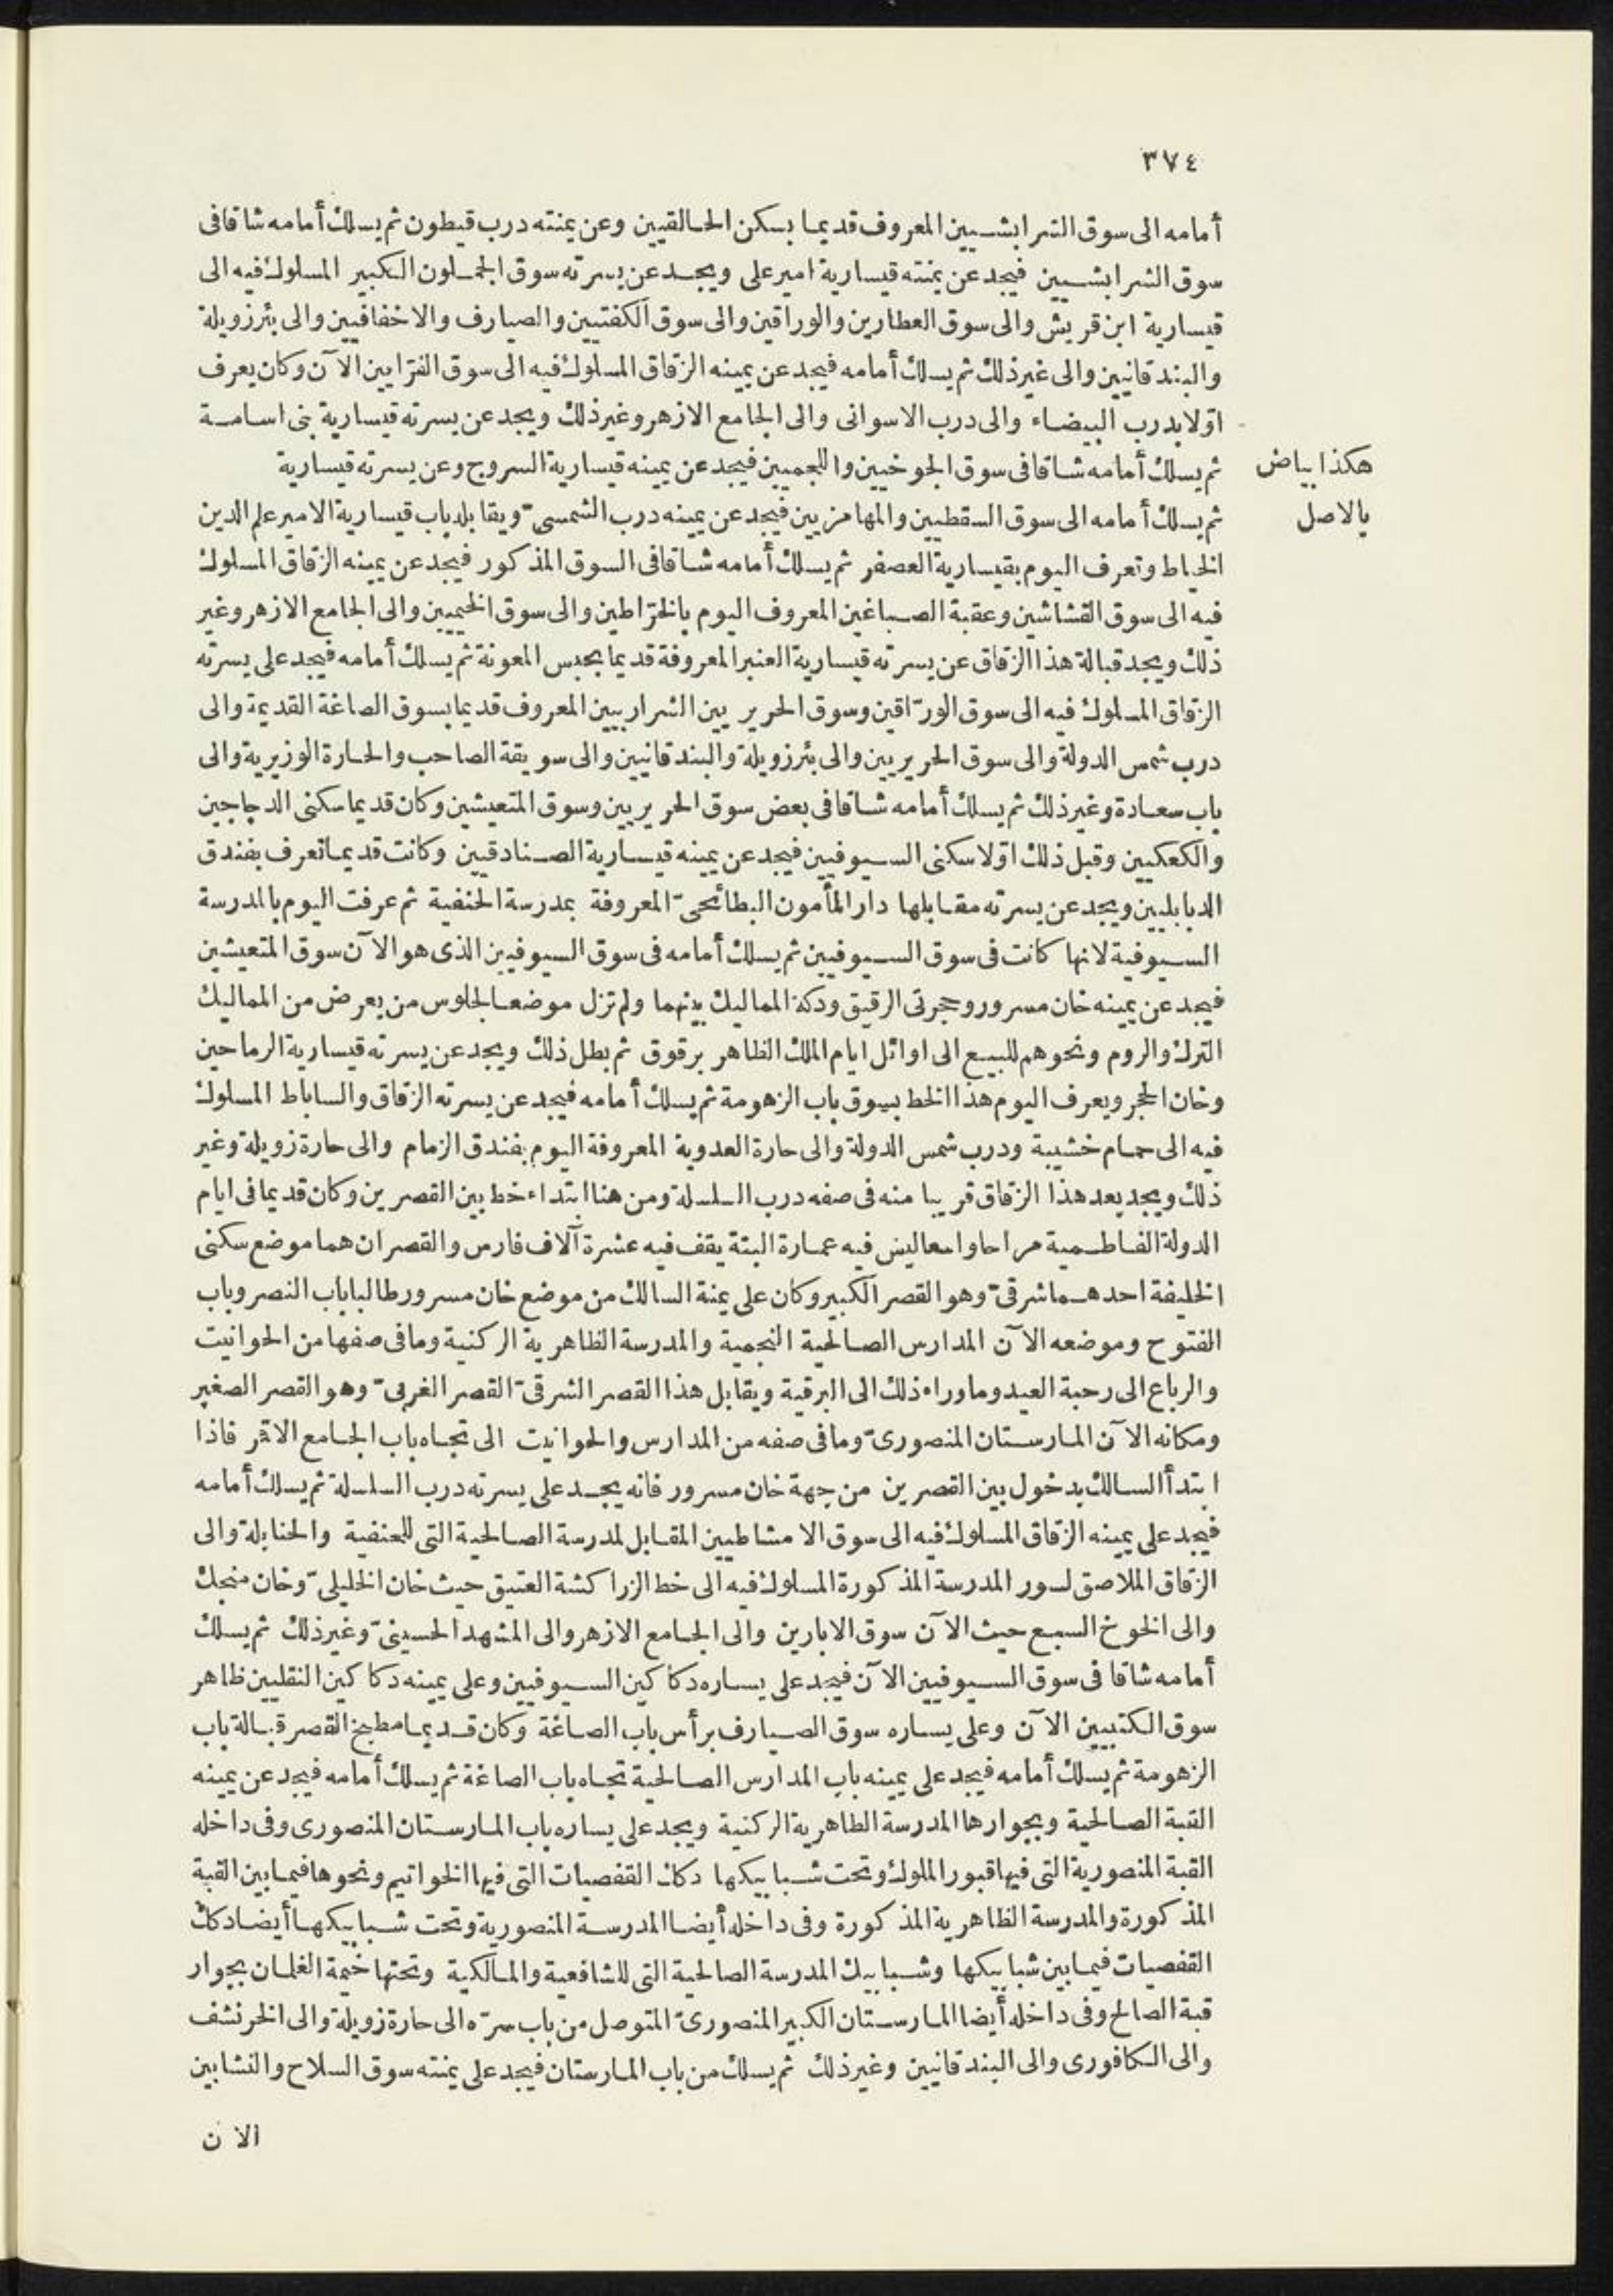 ٣٧٤
أمامه الى سوق الشرابشيين المعروف قديما بسكن الحالقيين وعن يمنته درب قيطون ثم يسلك أمامه شاقا فى
سوق الشرابشيين فيجد عن يمنته قيسارية امير على ويجد عن يسرته سوق الجملون الكبير المسلوك فيه الى
قيسارية ابن قريش والى سوق العطارين والوراقين والى سوق الكفتيين والصيارف والاخفافيين والى بئر زويلة
والبندقانيين والى غير ذلك ثم يسلك أمامه فيجد عن يمينه الزقاق المسلوك فيه الى سوق الفرّايين الآن وكان يعرف
اوّلا بدرب البيضاء والى درب الاسوانى والى الجامع الازهر وغير ذلك ويجد عن يسرته قيسارية بنى اسامة
ثم يسلك أمامه شاقا فى سوق الجوخيين واللجميين فيجد عن يمينه قيسارية السروج وعن يسرته قيسارية
هكذا بياض
بالاصل
ثم يسلك أمامه الى سوق السقطيين والمهامزيين فيجد عن يمينه درب الشمسىّ ويقابله باب قيسارية الامير علم الدين
الخياط وتعرف اليوم بقيسارية العصفر ثم يسلك أمامه شاقا فى السوق المذكور فيجد عن يمينه الزقاق المسلوك
فيه الى سوق القشاشين وعقبة الصباغين المعروف اليوم بالخرّاطين والى سوق الخيميين والى الجامع الازهر وغير
ذلك ويجد قبالة هذا الزقاق عن يسرته قيسارية العنبر المعروفة قديما بحبس المعونة ثم يسلك أمامه فيجد على يسرته
الزقاق المسلوك فيه الى سوق الورّاقين وسوق الحريريين الشراربيين المعروف قديما بسوق الصاغة القديمة والى
درب شمس الدولة والى سوق الحريريين والى بئر زويلة والبندقانيين والى سويقة الصاحب والحارة الوزيرية والى
باب سعادة وغير ذلك ثم يسلك أمامه شاقا فى بعض سوق الحريريين وسوق المتعيشين وكان قديما سكنى الدجاجين
والكعكيين وقبل ذلك اوّلا سكنى السيوفيين فيجد عن يمينه قيسارية الصنادقيين وكانت قديما تعرف بفندق
الدبابليين ويجد عن يسرته مقابلها دار المأمون البطائحىّ المعروفة بمدرسة الحنفية ثم عرفت اليوم بالمدرسة
السيوفية لانها كانت فى سوق السيوفيين ثم يسلك أمامه فى سوق السيوفيين الذى هو الآن سوق المتعيشين
فيجد عن يمينه خان مسرور وحجرتى الرقيق ودكة المماليك بينهما ولم تزل موضعا لجلوس من يعرض من المماليك
الترك والروم ونحوهم للبيع الى اوائل ايام الملك الظاهر برقوق ثم بطل ذلك ويجد عن يسرته قيسارية الرماحين
وخان الحجر ويعرف اليوم هذا الخط بسوق باب الزهومة ثم يسلك أمامه فيجد عن يسرته الزقاق والساباط المسلوك
فيه الى حمام خشيبة ودرب شمس الدولة والى حارة العدوية المعروفة اليوم بفندق الزمام والى حارة زويلة وغير
ذلك ويجد بعد هذا الزقاق قريبا منه فى صفه درب السلسلة ومن هنا ابتداء خط بين القصرين وكان قديما فى ايام
الدولة الفاطمية مراحا واسعا ليس فيه عمارة البتة يقف فيه عشرة آلاف فارس والقصران هما موضع سكنى
الخليفة احدهما شرقىّ وهو القصر الكبير وكان على يمنة السالك من موضع خان مسرور طالبا باب النصر وباب
الفتوح وموضعه الآن المدارس الصالحية النجمية والمدرسة الظاهرية الركنية وما فى صفها من الحوانيت
والرباع الى رحبة العيد وما وراء ذلك الى البرقية ويقابل هذا القصر الشرقىّ القصر الغربىّ وهو القصر الصغير
ومكانه الآن المارستان المنصورىّ وما فى صفه من المدارس والحوانيت الى تجاه باب الجامع الاقمر فاذا
ابتدأ السالك بدخول بين القصرين من جهة خان مسرور فانه يجد على يسرته درب السلسلة ثم يسلك أمامه
فيجد على يمينه الزقاق المسلوك فيه الى سوق الامشاطيين المقابل لمدرسة الصالحية التى للحنفية والحنابلة والى
الزقاق الملاصق لسور المدرسة المذكورة المسلوك فيه الى خط الزراكشة العتيق حيث خان الخليلىّ وخان منجك
والى الخوخ السبع حيث الآن سوق الابارين والى الجامع الازهر والى المشهد الحسينىّ وغير ذلك ثم يسلك
أمامه شاقا فى سوق السيوفيين الآن فيجد على يساره دكاكين السيوفيين وعلى يمينه دكاكين النقليين ظاهر
سوق الكتبيين الآن وعلى يساره سوق الصيارف برأس باب الصاغة وكان قديما مطبخ القصر قبالة باب
الزهومة ثم يسلك أمامه فيجد على يمينه باب المدارس الصالحية تجاه باب الصاغة ثم يسلك أمامه فيجد عن يمينه
القبة الصالحية وبجوارها المدرسة الظاهرية الركنية ويجد على يساره باب المارستان المنصورى وفى داخله
القبة المنصورية التى فيها قبور الملوك وتحت شبابيكها دكك القفصيات التى فيها الخواتيم ونحوها فيما بين القبة
المذكورة والمدرسة الظاهرية المذكورة وفى داخله أيضا المدرسة المنصورية وتحت شبابيكها أيضا دكك
القفصيات فيما بين شبابيكها وشبابيك المدرسة الصالحية التى للشافعية والمالكية وتحتها خيمة الغلمان بجوار
قبة الصالح وفى داخله أيضا المارستان الكبير المنصورىّ المتوصل من باب سرّه الى حارة زويلة والى الخرنشف
والى الكافورى والى البندقانيين وغير ذلك ثم يسلك من باب المارستان فيجد على يمنته سوق السلاح والنشابين
الآن